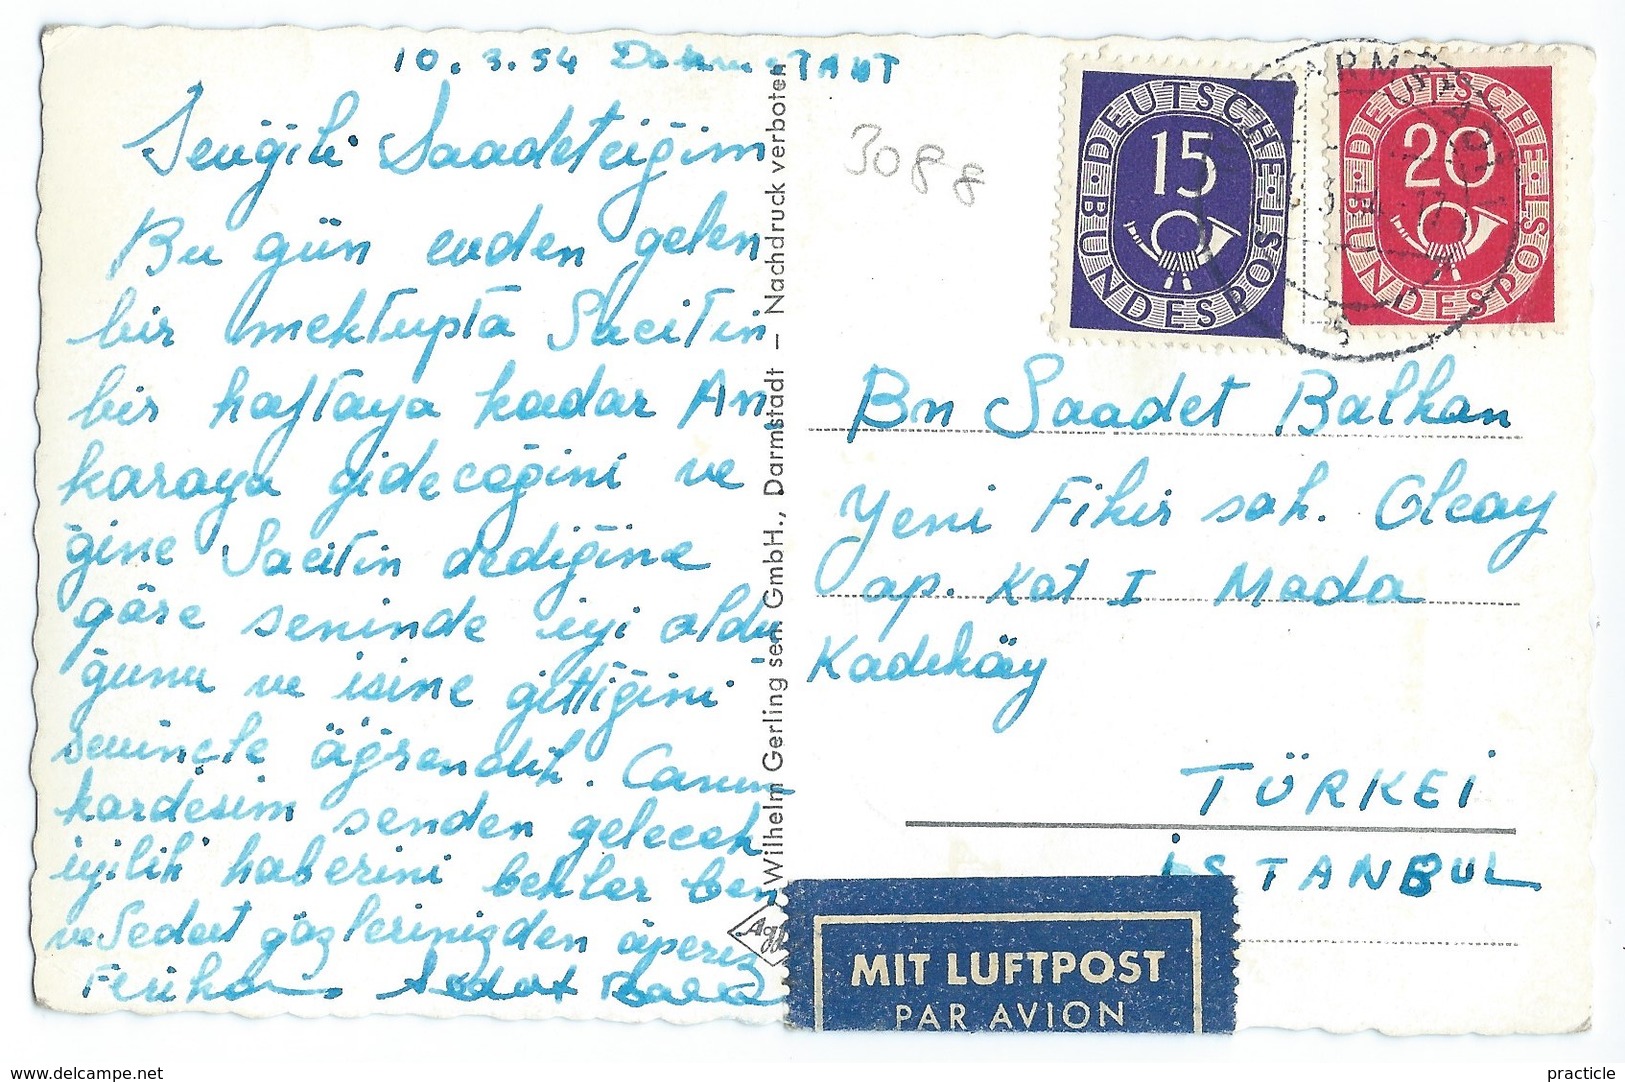 10.3.54 Darmstadt
Sevgili Saadetciğim
Bu gün evden gelen
bir mektupta Sacitin
bir haftaya kadar An
karaya gideceğini ve
ğine Sacitin dediğine
göre seninde iyi oldu
ğunu ve isine gittiğini
sevinçle öğrendik. Canım
kardesim senden gelecek
iyilik haberini bekler ben
ve Sedat gözlerinizden öperiz
Feriha Sedat
Wilhelm Gerling sen. GmbH., Darmstadt – Nachdruck verboten
Agfa
3088
DEUTSCHE BUNDESPOST
15
DEUTSCHE BUNDESPOST
20
DARMSTADT
Bn Saadet Balkan
Yeni Fikir sok. Olcay
ap. Kat I Moda
Kadıköy
TÜRKEİ
İSTANBUL
MIT LUFTPOST
PAR AVION
www.delcampe.net
practicle